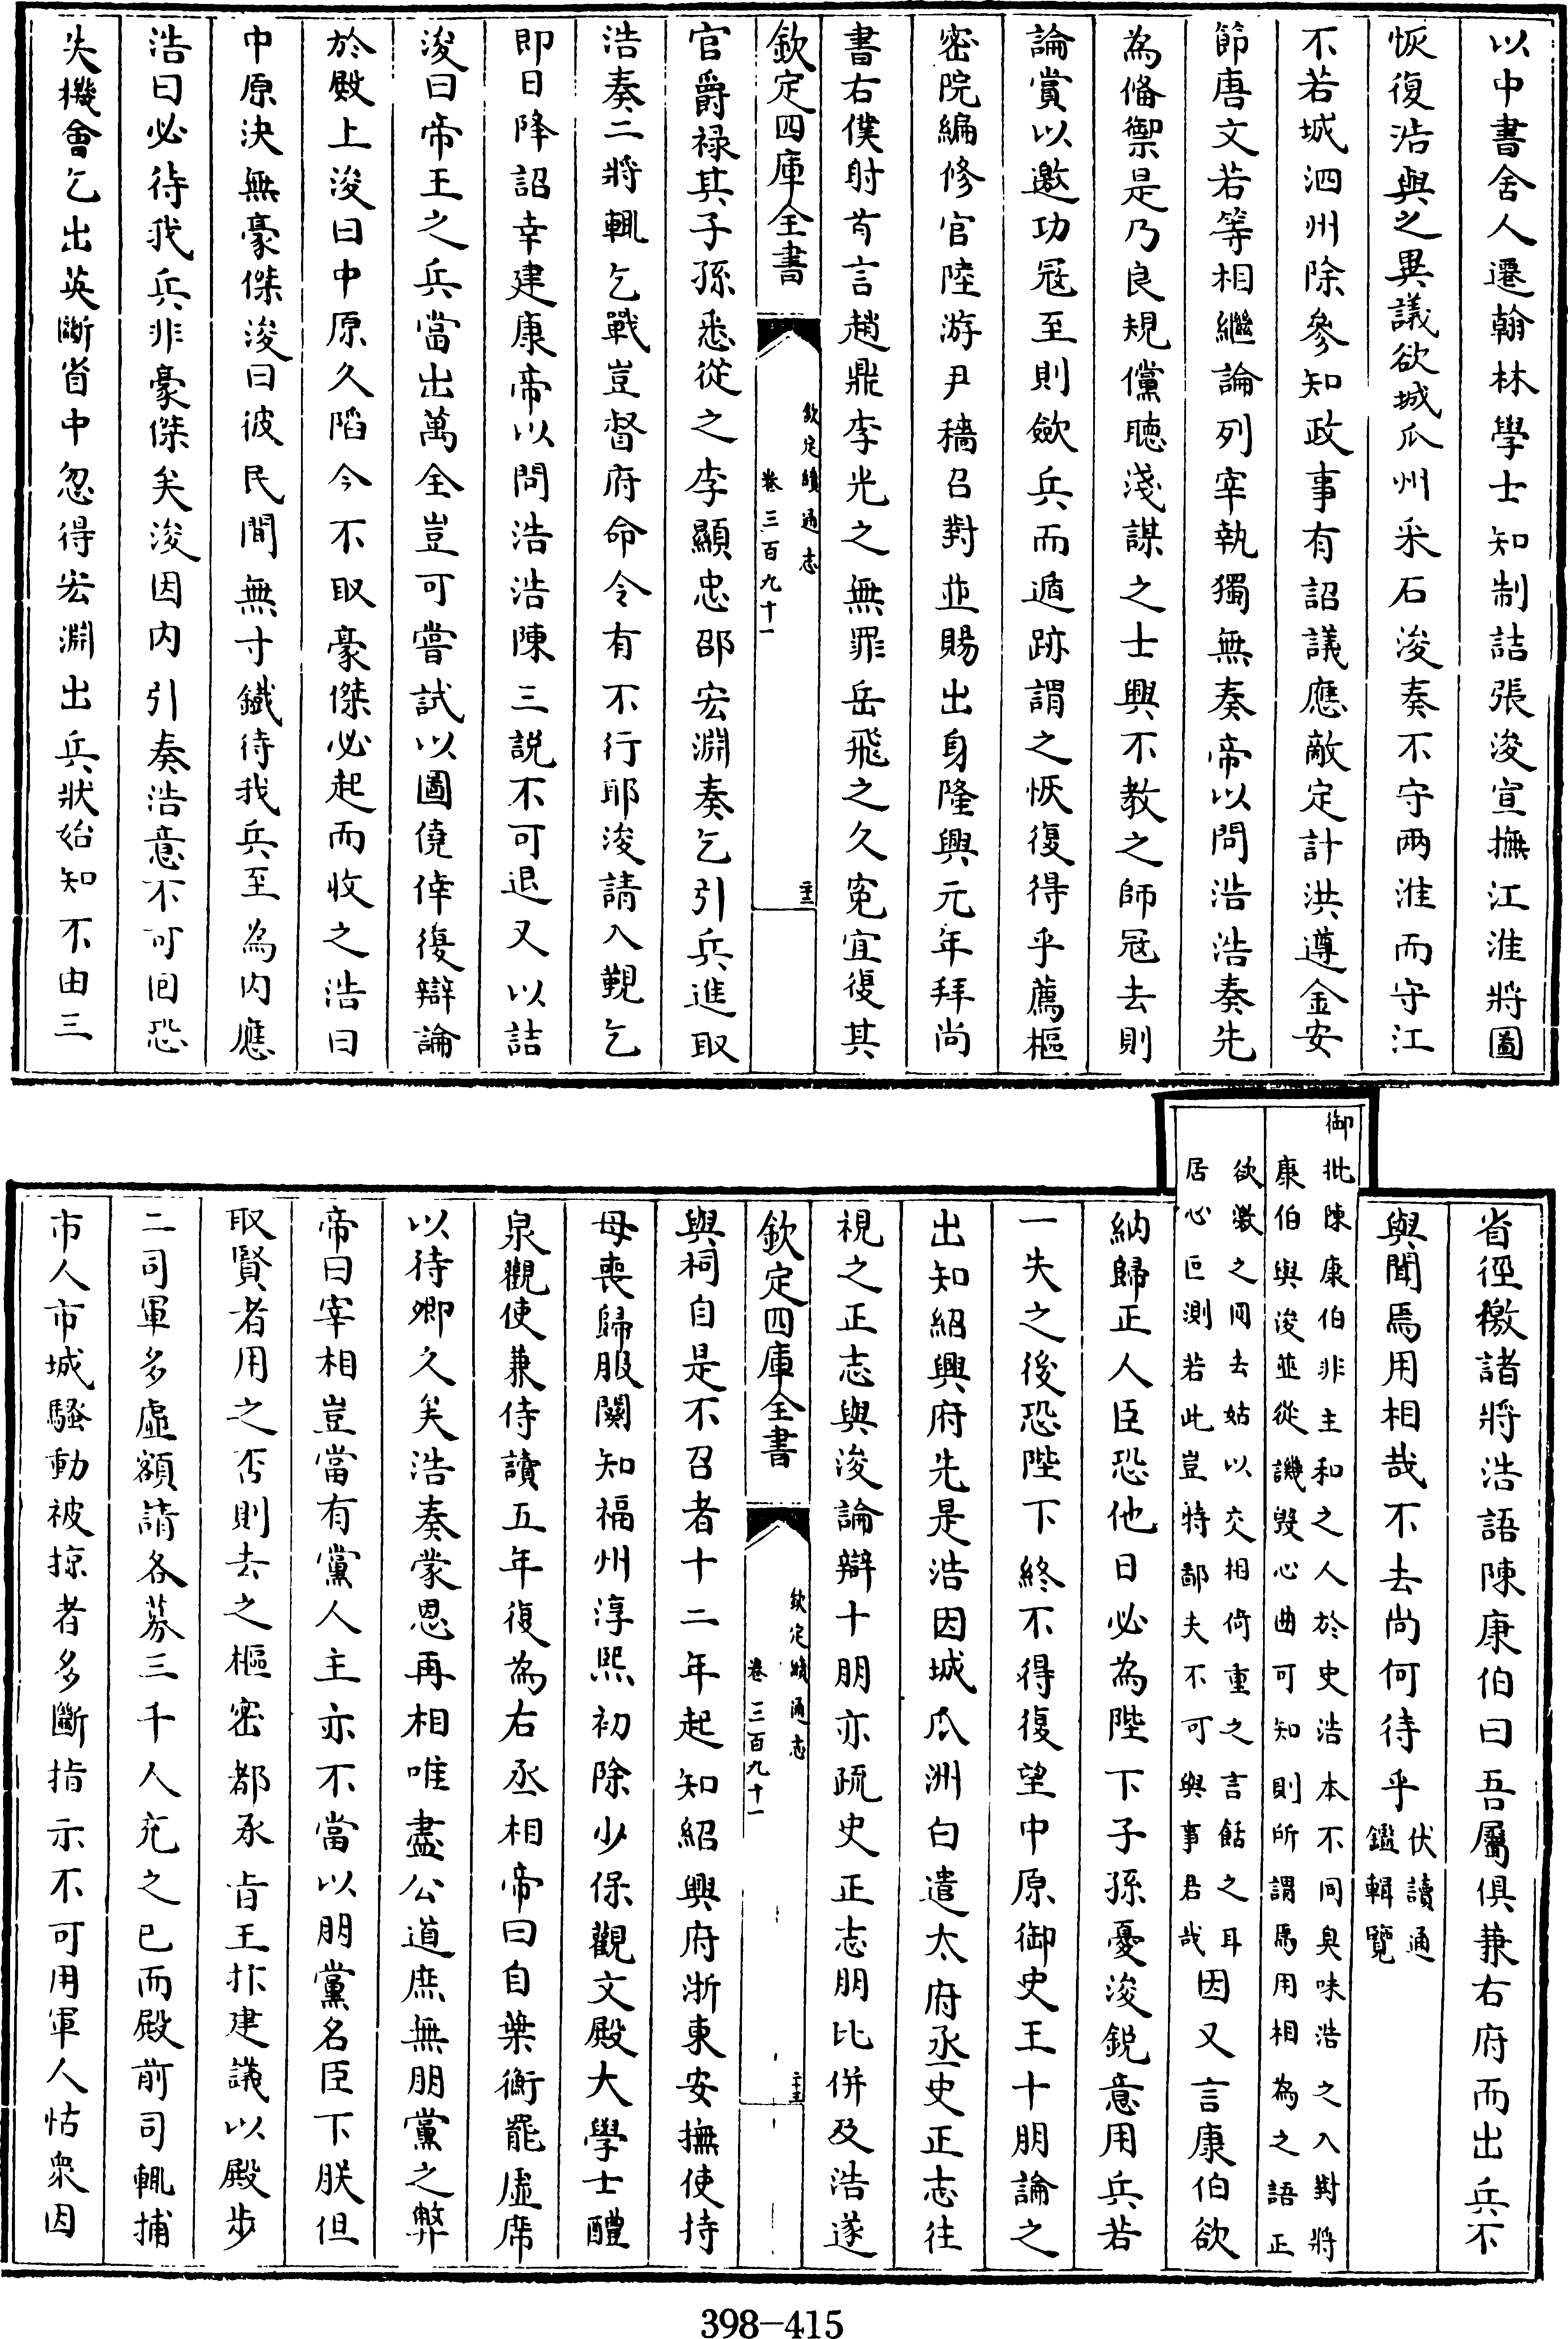 以中書舍人遷翰林學士知制詰張浚宣撫江淮將圖
恢復浩與之異議欲城瓜州采石浚奏不守兩淮而守江
不若城泗州除參知政事有詔議應敵定計洪遵金安
節唐文若等相繼論列宰執獨無奏帝以問浩浩奏先
為備禦是乃良規儻聽淺謀之士興不教之師冦去則
論賞以邀功冦至則斂兵而遁跡謂之恢復得乎薦樞
密院編修官陸游尹穡召對並賜出身隆興元年拜尚
書右僕射首言趙鼎李光之無罪岳飛之久寃宜復其
欽定四庫全書
欽定續通志
卷三百九十一
二十三
官爵祿其子孫悉從之李顯忠邵宏淵奏乞引兵進取
浩奏二將輒乞戰豈督府命令有不行耶浚請入覲乞
即日降詔幸建康帝以問浩浩陳三説不可退又以詰
浚曰帝王之兵當出萬全豈可嘗試以圖僥倖復辯論
於殿上浚曰中原久陷今不取豪傑必起而收之浩曰
中原決無豪傑浚曰彼民間無寸鐵待我兵至為内應
浩曰必待我兵非豪傑矣浚因内引奏浩意不可回恐
失機會乞出英斷省中忽得宏淵出兵狀始知不由三
省徑檄諸將浩語陳康伯曰吾屬俱兼右府而出兵不
與聞焉用相哉不去尚何待乎伏讀通
鑑輯覽
御批陳康伯非主和之人於史浩本不同臭味浩之入對將
康伯與浚並從譏毁心曲可知則所謂焉用相為之語正
欲激之同去姑以交相倚重之言餂之耳
居心叵測若此豈特鄙夫不可與事君哉因又言康伯欲
納歸正人臣恐他日必為陛下子孫憂浚鋭意用兵若
一失之後恐陛下終不得復望中原御史王十朋論之
出知紹興府先是浩因城瓜洲白遣太府丞史正志往
視之正志與浚論辯十朋亦疏史正志朋比併及浩遂
欽定四庫全書
欽定續通志
卷三百九十一
二十三
與祠自是不召者十二年起知紹興府浙東安撫使持
母喪歸服闋知福州淳熙初除少保觀文殿大學士醴
泉觀使兼侍讀五年復為右丞相帝曰自葉衡罷虛席
以待卿久矣浩奏蒙恩再相唯盡公道庶無朋黨之弊
帝曰宰相豈當有黨人主亦不當以朋黨名臣下朕但
取賢者用之否則去之樞密都承旨王抃建議以殿步
二司軍多虛額請各募三千人充之已而殿前司輒捕
市人市城騷動被掠者多斷指示不可用軍人怙衆因
398-415